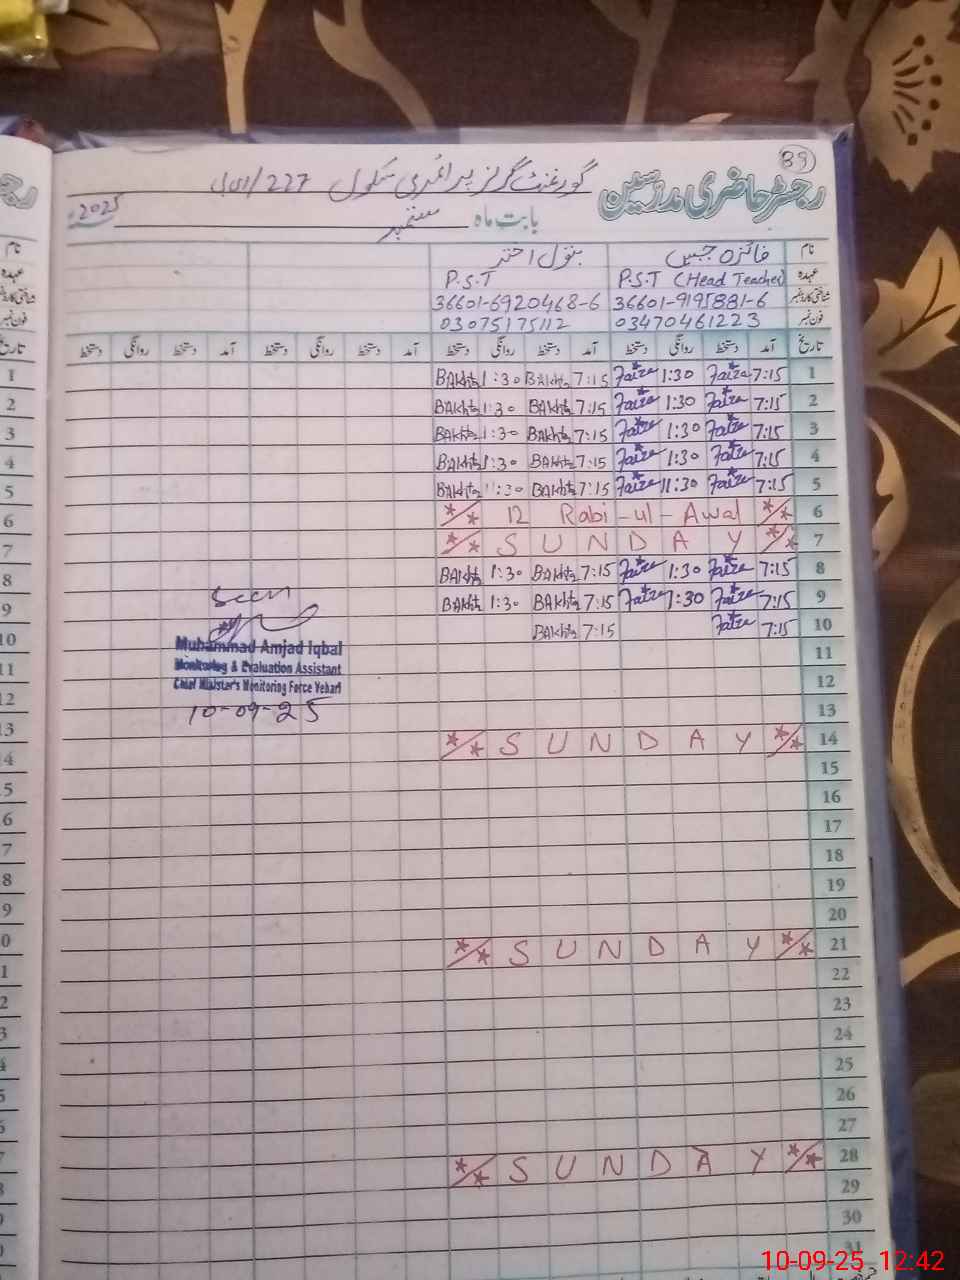 39
رجسٹر حاضری مدرسین
گورنمنٹ گرلز پرائمری سکول 227
بابت ماہ ستمبر 2025ء
نام فائزہ جبیں بتول اختر
عہدہ P.S.T (Head Teacher) P.S.T
شناختی کارڈ نمبر 36601-9195881-6 36601-6920468-6
فون نمبر 03470461223 03075175112
تاریخ آمد دستخط روانگی دستخط آمد دستخط روانگی دستخط آمد دستخط روانگی دستخط آمد دستخط روانگی دستخط
1 7:15 Faiza 1:30 Faiza 7:15 BAkhtr 1:30 BAkhtr
2 7:15 Faiza 1:30 Faiza 7:15 BAkhtr 1:30 BAkhtr
3 7:15 Faiza 1:30 Faiza 7:15 BAkhtr 1:30 BAkhtr
4 7:15 Faiza 1:30 Faiza 7:15 BAkhtr 1:30 BAkhtr
5 7:15 Faiza 11:30 Faiza 7:15 BAkhtr 11:30 BAkhtr
6 12 Rabi-ul-Awal
7 SUNDAY
8 7:15 Faiza 1:30 Faiza 7:15 BAkhtr 1:30 BAkhtr
9 7:15 Faiza 1:30 Faiza 7:15 BAkhtr 1:30 BAkhtr
10 7:15 Faiza 7:15 BAkhtr
11
12
13
14 SUNDAY
15
16
17
18
19
20
21 SUNDAY
22
23
24
25
26
27
28 SUNDAY
29
30
31
Seen
Muhammad Amjad Iqbal
Monitoring & Evaluation Assistant
Chief Minister's Monitoring Force Vehari
10-09-25
10-09-25 12:42